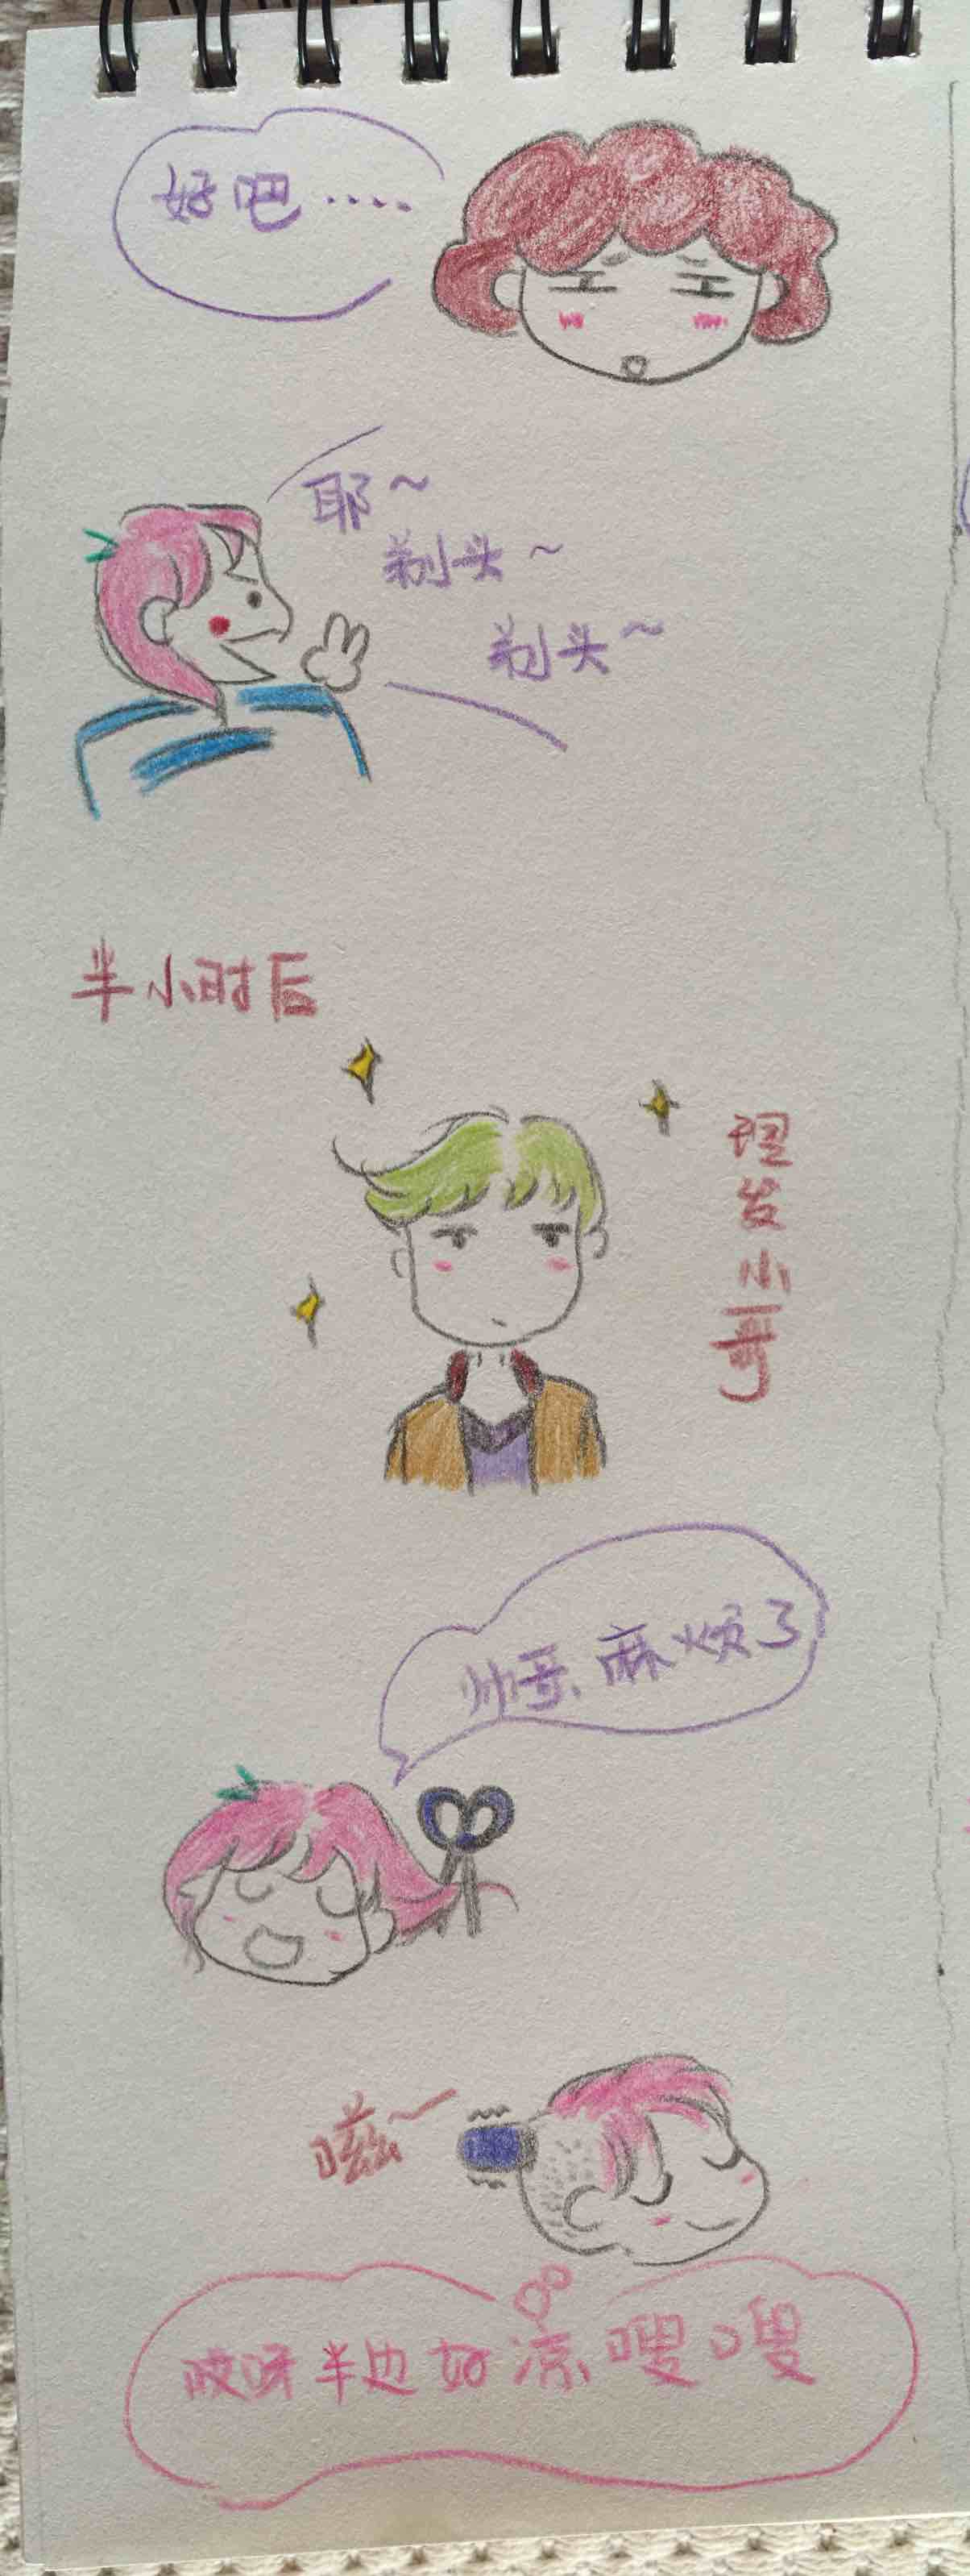 好吧.....
耶~
剃头~
剃头~
半小时后
理发小哥
帅哥、麻烦了
嗞~
哎呀半边好凉嗖嗖